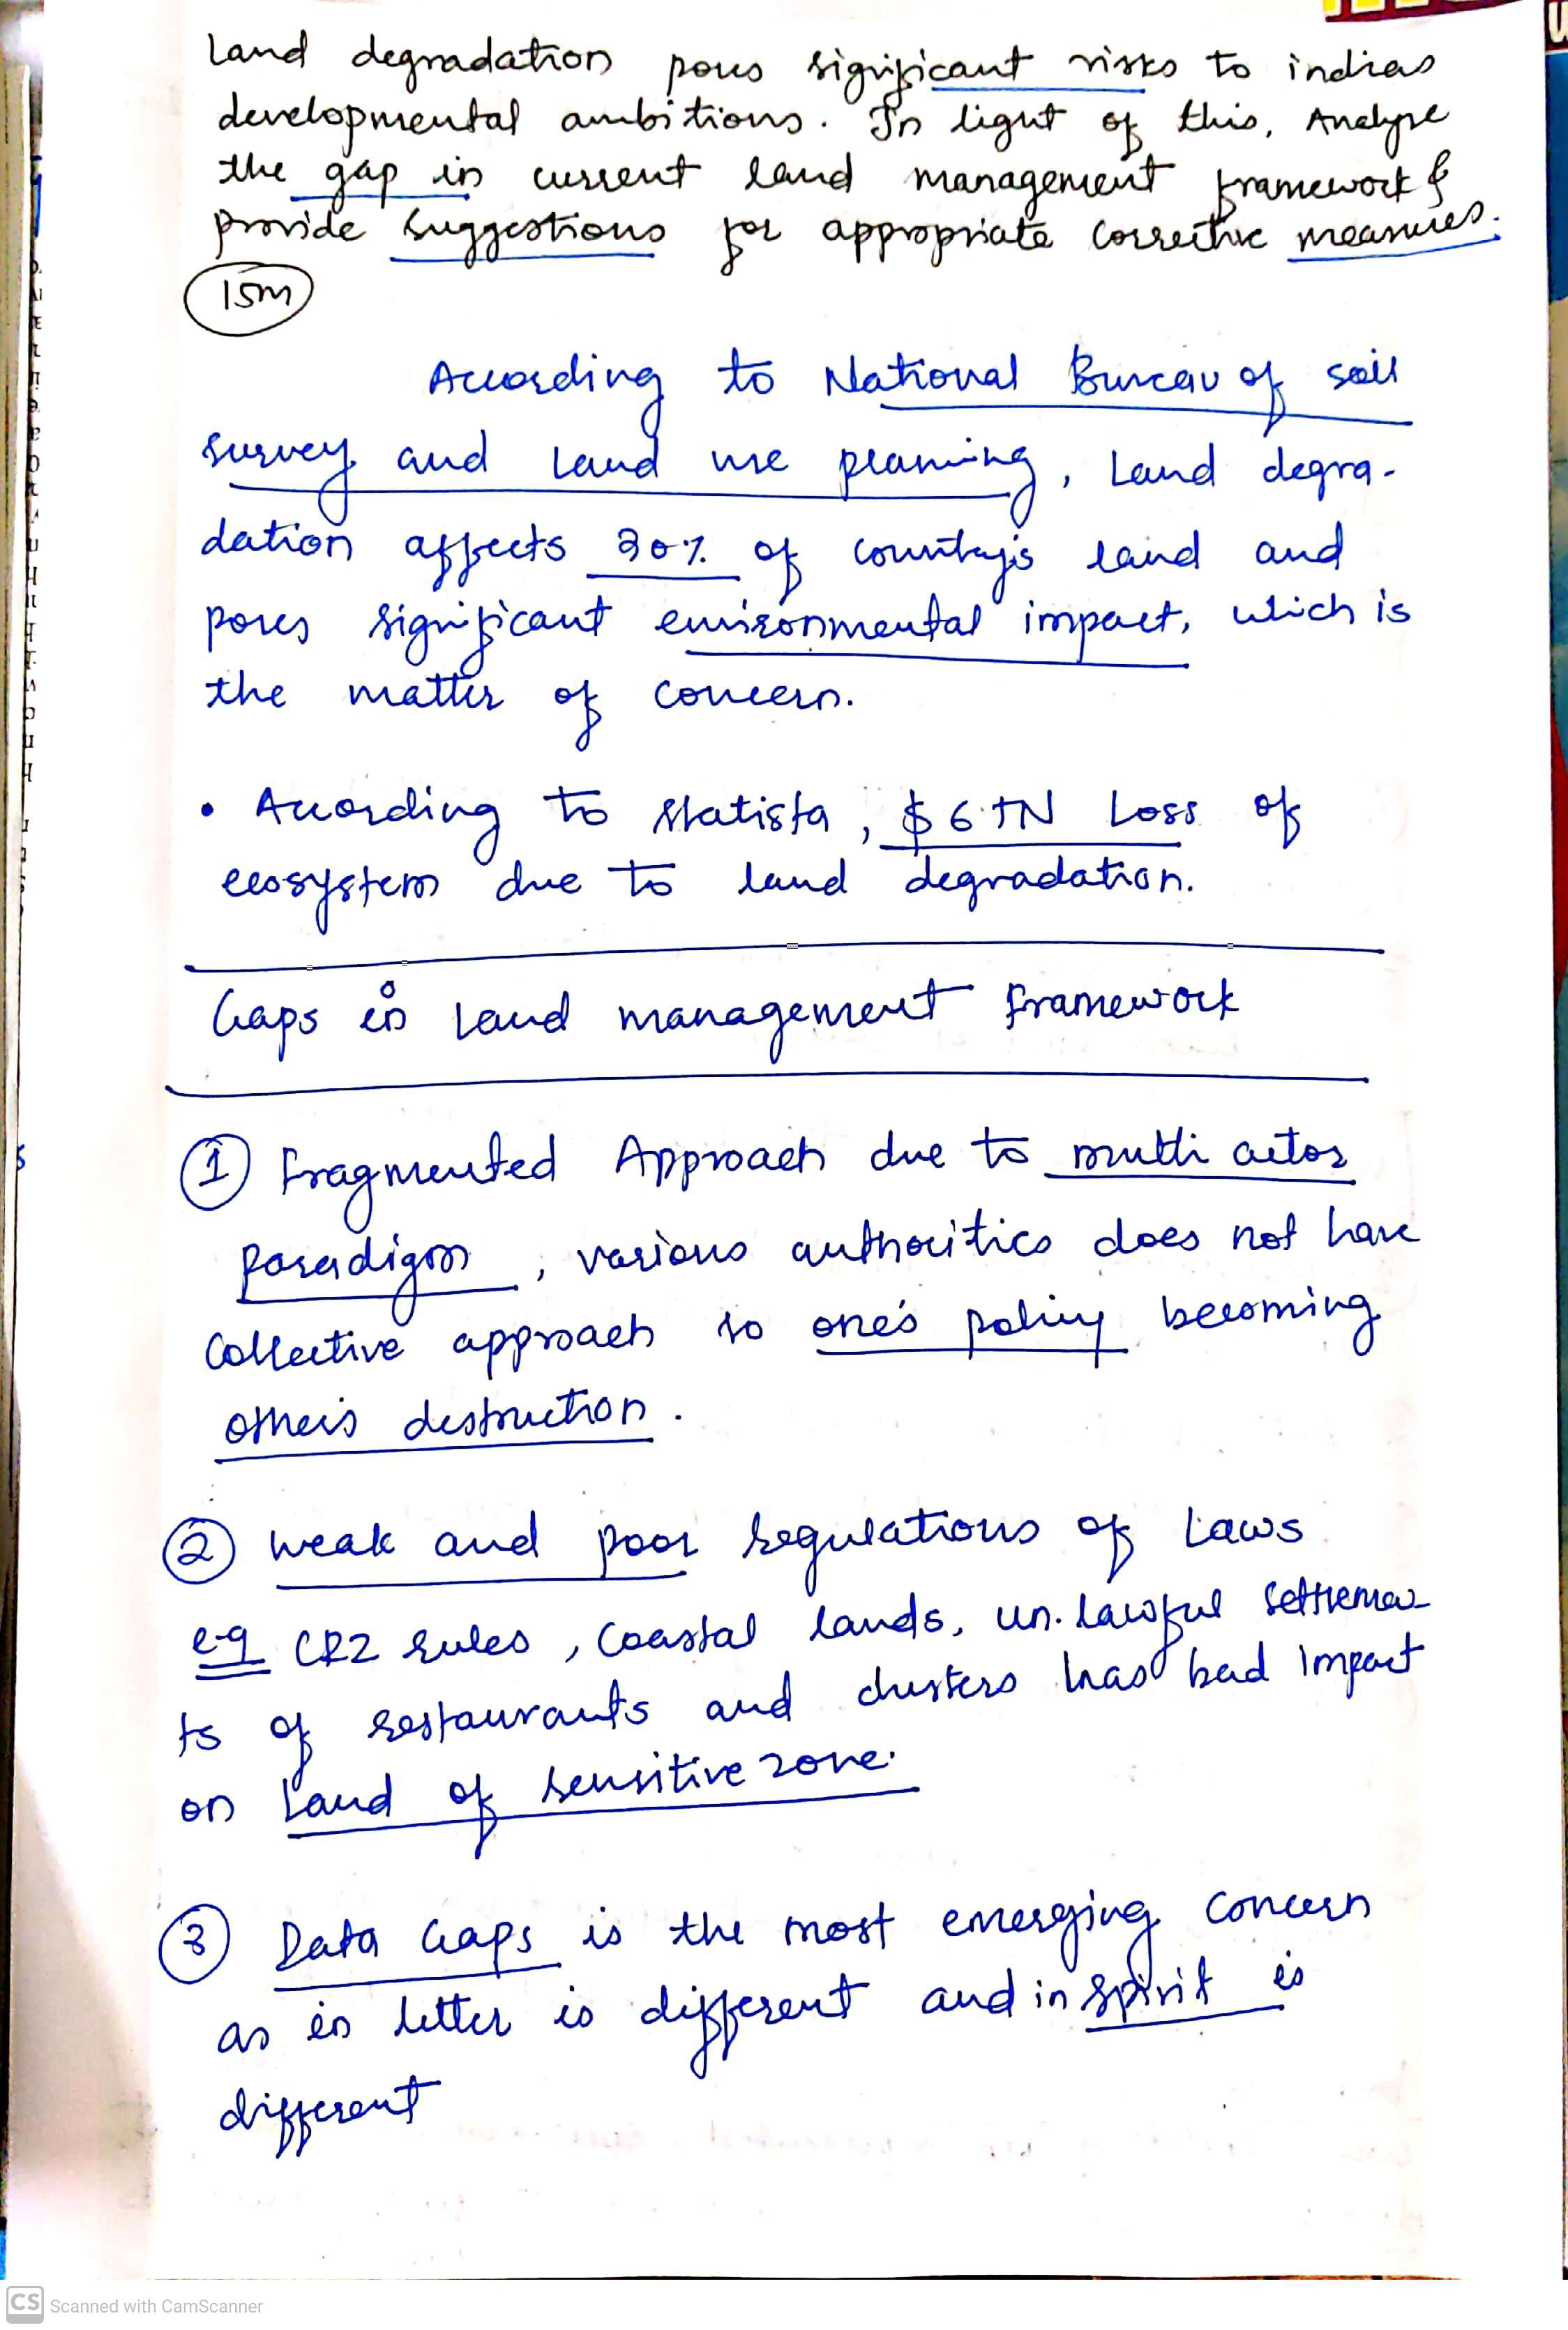 Land degradation poses significant risks to indias
developmental ambitions. In light of this, Analyse
the gap in current land management framework &
provide suggestions for appropriate corrective measures.
15m
According to National Bureau of soil
survey and Land use planning, Land degra-
dation affects 30% of country's land and
poses significant environmental impact, which is
the matter of concern.
• According to Statista, $ 6 TN Loss of
ecosystem due to land degradation.
Gaps in Land management framework
① Fragmented Approach due to multi actor
Paradigm, various authorities does not have
collective approach so one's policy becoming
other's destruction.
② weak and poor regulations of Laws
e.g CRZ rules, Coastal lands, un-lawful settlemen
ts of restaurants and clusters has bad impact
on Land of sensitive zone.
③ Data Gaps is the most emerging concern
as in letter is different and in spirit is
different
CS Scanned with CamScanner